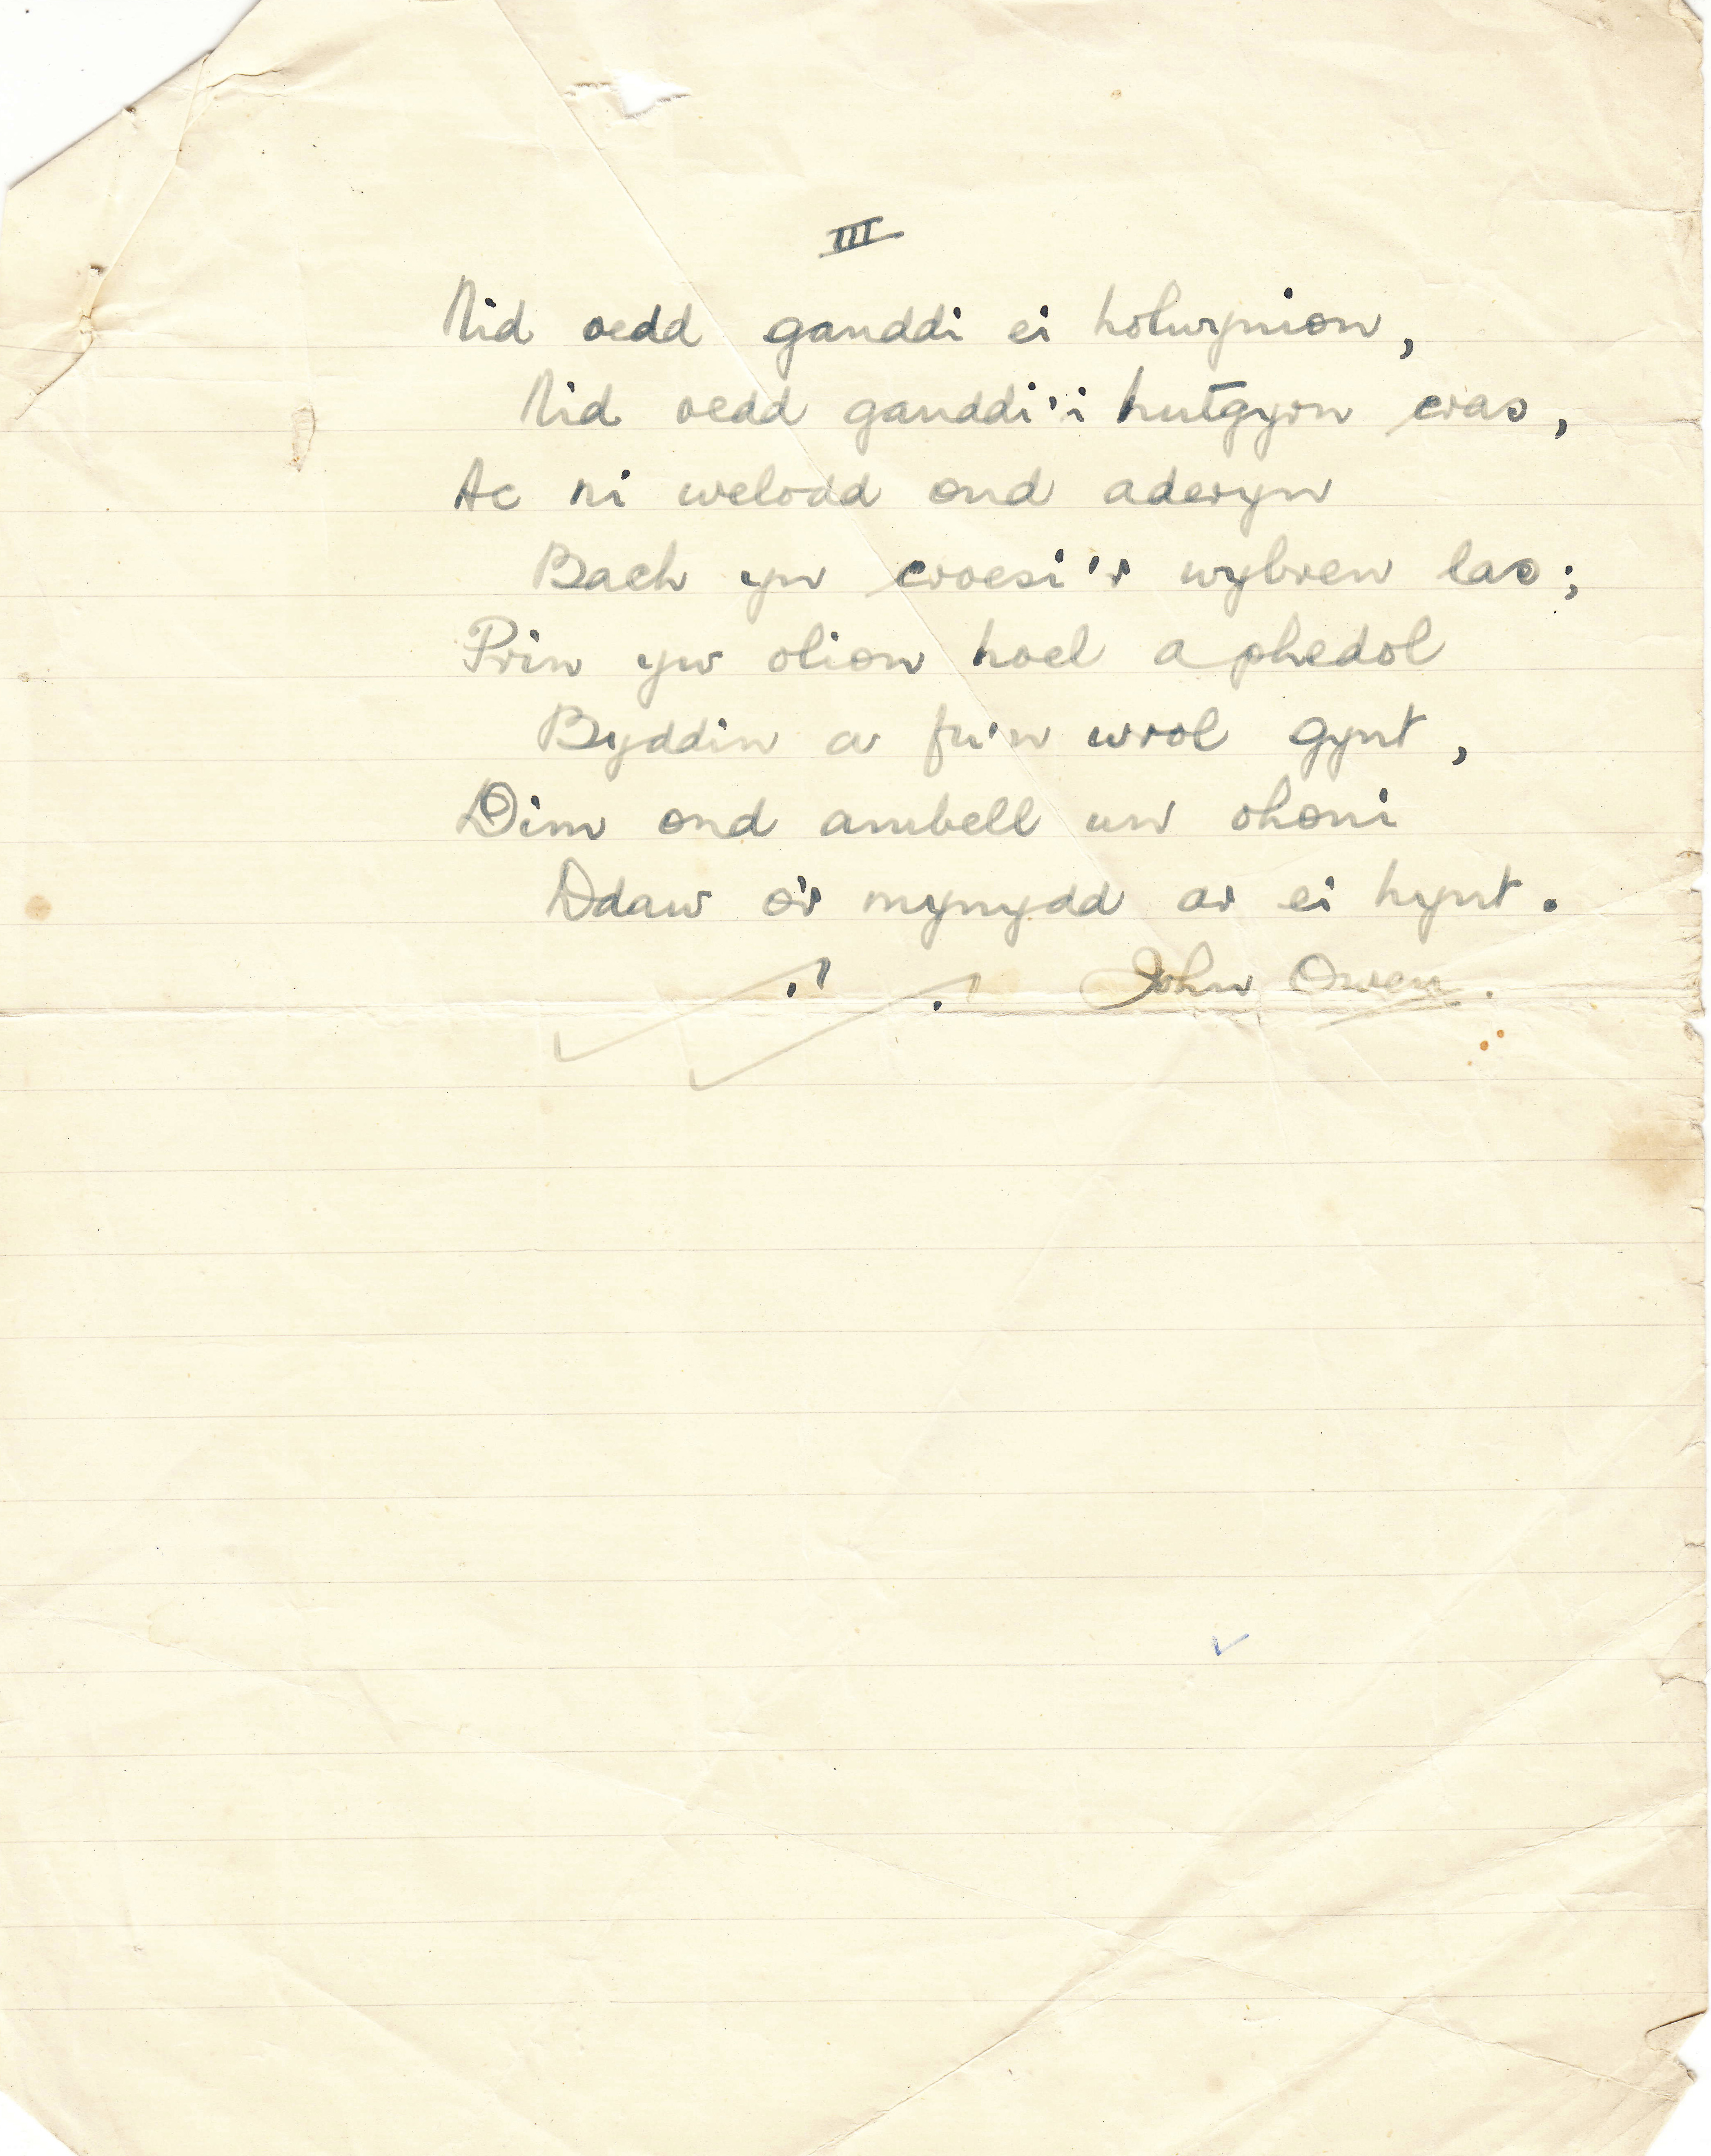 III
Nid oedd ganddi ei holwynion,
Nid oedd ganddi'i hutgyrn cras,
Ac ni welodd ond aderyn
Bach yn croesi'r wybren las;
Prin yw olion hoel a phedol
Byddin a fu'n wrol gynt,
Dim ond ambell un ohoni
Ddaw o'r mynydd ar ei hynt.
John Owen.